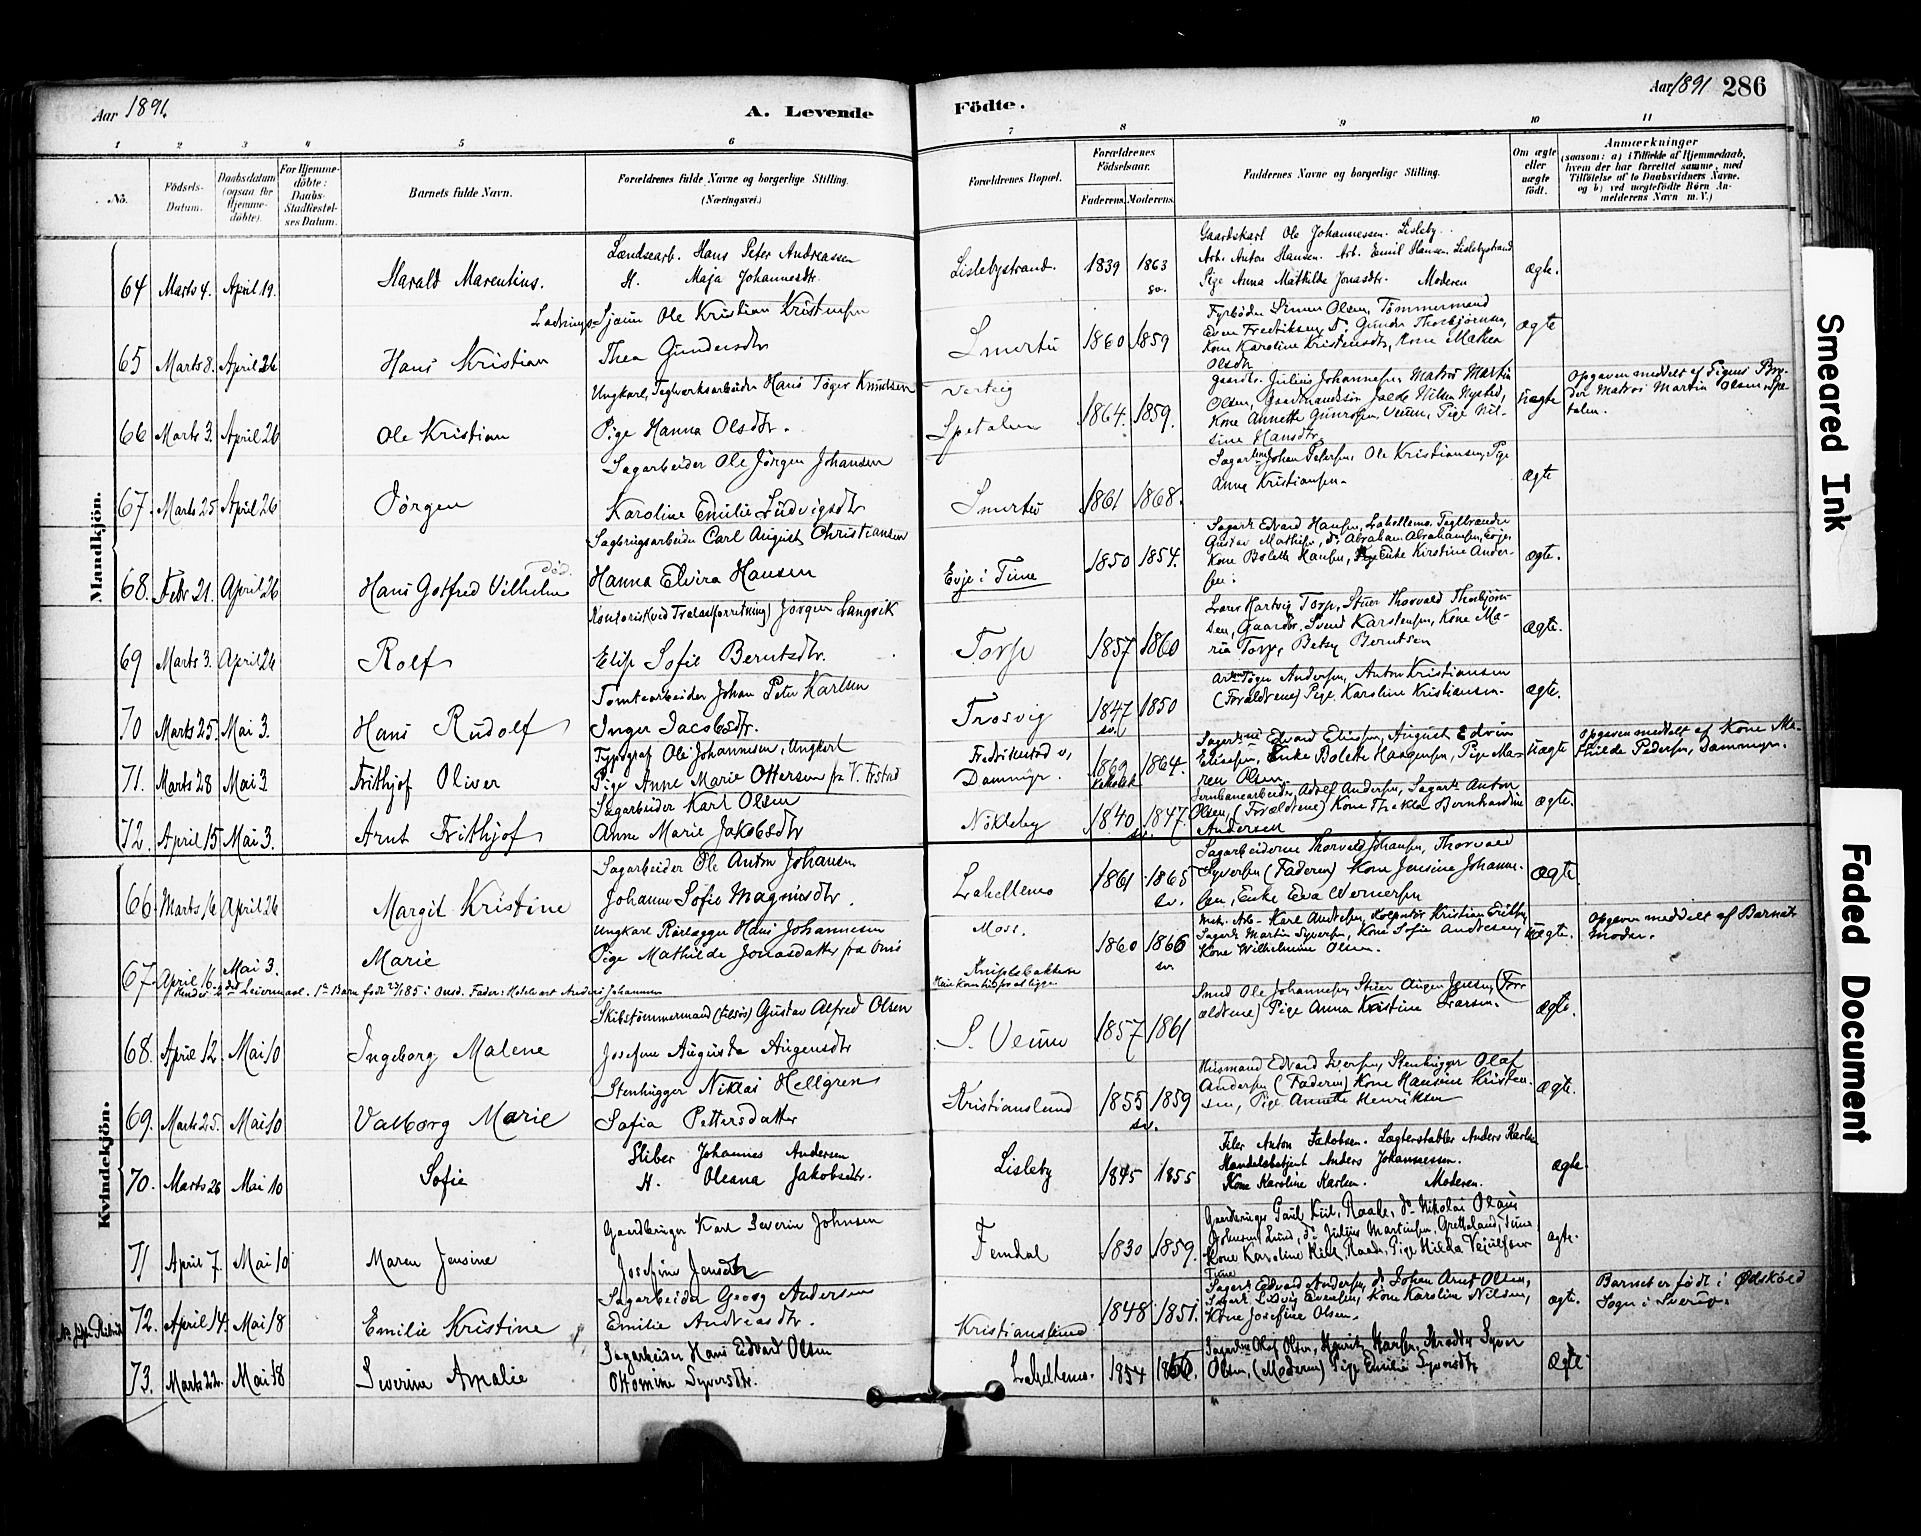 Aar 1891.
A. Levende
Födte.
Aar 1891 286
1 2 3 4 5 6 7 8 9 10 11
No.
Födsels-Datum.
Daabsdatum (ogsaa for Hjemmedöbte).
For Hjemmedöbte: Daabs-Stadfæstelses Datum.
Barnets fulde Navn.
Forældrenes fulde Navne og borgerlige Stilling. (Næringsvei.)
Forældrenes Bopæl.
Forældrenes Födselsaar.
Faderens. Moderens.
Faddernes Navne og borgerlige Stilling.
Om ægte eller uægte födt.
Anmærkninger (saasom: a) i Tilfælde af Hjemmedaab, hvem der har forrettet samme, med Tilföielse af to Daabsvidners Navne. og b) ved uægtefödte Börn Anmelderens Navn m. V.)
Mandkjön.
64 Marts 4. April 19. Harald Marentius.
Landsearb. Hans Peter Andreassen
H. Maja Johannesdtr.
Lislebystrand. 1839 1863 sv.
Gaardskarl Ole Johannessen. Lisleby.
Arb. Anton Hansen. Arb. Emil Hansen. Lislebystrand
Pige Anna Mathilde Jonasdtr. Moderen
ægte.
65 Marts 8. April 26 Hans Kristian
Ladnings-Sjauer Ole Kristian Kristensen
Thea Gundersdtr
Smertu 1860 1859
Fyrböder Simen Olsen, Tömmermand
Even Fredriksen, do Gunder Thorbjörnsen,
Kone Karoline Kristensdtr, Kone Mathea
Olsdtr
ægte
66 Marts 3. April 26 Ole Kristian
Ungkarl, Teglverksarbeider Hans Töger Knudsen
Pige Hanna Olsdtr.
Verteig
Spetalen 1864. 1859.
Gaardbr. Julius Johannesen, Matros Martin
Olsen, Gaardmandssön
Kone Annette Gunersen, Veum, Pige Nil-
sine Hansdtr.
uægte
Opgaven meddelt af Pigens Bro-
der Matros Martin Olsen Spe-
talen.
67. Marts 25 April 26 Jörgen
Sagarbeider Ole Jörgen Johansen
Karoline Emilie Ludvigsdtr
Smertu 1861 1868.
Sagarb.erne Johan Petersen, Ole Kristiansen, Pige
Anna Kristiansen.
ægte
68. Febr 21. April 26 Hans Gotfred Vilhelm død.
Sagbrugsarbeider Carl August Christiansen
Hanna Elvira Hansen
Evje i Tune 1850 1854.
Sagarb. Edvard Hansen, Lahellemo, Teglbrænder
Gustav Mathisen, do Abraham Abrahamsen, Evje,
Kone Bolette Hansen, Enke Kirstine Ander-
sen.
ægte.
69 Marts 3. April 26 Rolf
Kontorist ved Trælastforretning, Jörgen Langvik
Elise Sofie Berntsdtr.
Torp 1857 1860
Lars Hartvig Torp, Stuer Thorvald Thorbjörn-
sen, Gaardbr. Svend Karstensen, Kone Ma-
ria Torp, Betsy Berntsen
ægte.
70 Marts 25. Mai 3. Hans Rudolf
Tomtearbeider Johan Peter Karlsen
Inger Jacobsdtr.
Trosvig 1847 sv. 1850
Arb. Töger Andersen, Anton Kristiansen
(Forældrene) Pige Karoline Kristiansen.
ægte.
71. Marts 28 Mai 3 Frithjof Oliver
Typograf Ole Johannesen, Ungkarl
Pige Anne Marie Ottersen fra V. Frstad
Fredrikstad v,
Dammyr. 1869 1864.
Sagarb.ne Edvard Eliesen, August Edvin
Eliesen, Enke Bolette Haagensen, Pige Ma-
ren Olsen.
uægte
Opgaven meddelt af Kone Ma-
thilde Pedersen, Dammyr.
72. April 15 Mai 3. Arnt Frithjof
Sagarbeider Karl Olsen
Anne Marie Jakobsdtr
Nökleby 1840 sv. 1847.
Jernbanearbeider Adolf Andersen, Sagarb. Anton
Olsen, (Forældrene) Kone Thekla Bernhardine
Andersen
ægte.
Kvindekjön.
66 Marts 16 April 26 Margit Kristine
Sagarbeider Ole Anton Johansen
Johanne Sofie Magnusdtr.
Lahellemo 1861 1865 sv.
Sagarbeiderne Thorvald Johansen, Thorvald
Syversen (Faderen) Kone Jensine Johanne-
sen, Enke Eva Wernersen
ægte.
67 April 16. Mai 3. Marie
Ungkarl Rörlægger Hans Johannesen
Pige Mathilde Jonasdatter fra Onsö
Moss.
Kniplebakkene 1860 1866 sv.
Mek. Arb. Karl Andresen, Kolportör Kristian Eriksen
Sagarb. Martin Syversen, Kone Sofie Andresen,
Kone Wilhelmine Olsen.
Uægte.
Opgaven meddelt af Barnets
moder.
Hendes 2det Leiermaal. 1ste Barn født 23/1 85 i Onsö. Fader: Anders Johannesen
68. April 12. Mai 10 Ingeborg Malene
Skibstömmermand (tilsös) Gustav Alfred Olsen
Josefine Augusta Augensdtr
S. Veum 1857 1861
Smed Ole Johannesen, Stuer Augen Jensen, (For-
ældrene) Pige Anna Kristine Larsen.
ægte.
69. Marts 25. Mai 10 Valborg Marie
Stenhugger Niklas Hellgren
Sofia Pettersdatter
Kristianslund 1855 sv. 1859
Husmand Edvard Iversen, Stenhugger Olaf
Andersen (Faderen) Kone Hansine Kristen-
sen, Pige Annette Henriksen
ægte.
70. Marts 26 Mai 10 Sofie
Sliber Johannes Andersen
H. Oleana Jakobsdtr.
Lisleby 1845 1855
Filer Anton Jakobsen. Lægterstabler Anders Karlsen
Handelsbetjent Anders Johannessen.
Kone Karoline Karlsen. Moderen.
ægte.
71 April 7. Mai 10 Maren Jensine
Gaardbruger Karl Severin Johnsen
Josefine Jensdtr
Femdal 1830 1859.
Gaardbruger Paul Kiil, Raade, do Nikolai Olaus
Johnsen, Lund, do Julius Martinsen, Grettaland, Tune
Kone Karoline Kiil, Raade, Pige Hilda Vejulfsen
Tune
ægte.
72. April 14. Mai 18 Emilie Kristine
Sagarbeider Georg Andersen
Emilie Andreasdtr.
Kristianslund 1848 1851.
Sagarb. Edvard Andersen, do Johan Arnt Olsen,
Sagarb. Ludvig Evensen, Kone Karoline Nilsen,
Kone Josefine Olsen.
ægte.
Barnet er födt i Ødskōld
Sogn i Sverig.
73. Marts 22. Mai 18 Severine Amalie
Sagarbeider Hans Edvard Olsen
Ottomine Syversdtr.
Lahellemo. 1854 1866.
Sagarb.ne Olaf Olsen, Hjerits Karlsen, Syver
Olsen, (Moderen) Pige Emilie Syversdtr
Ægte
Smeared Ink
Faded Document